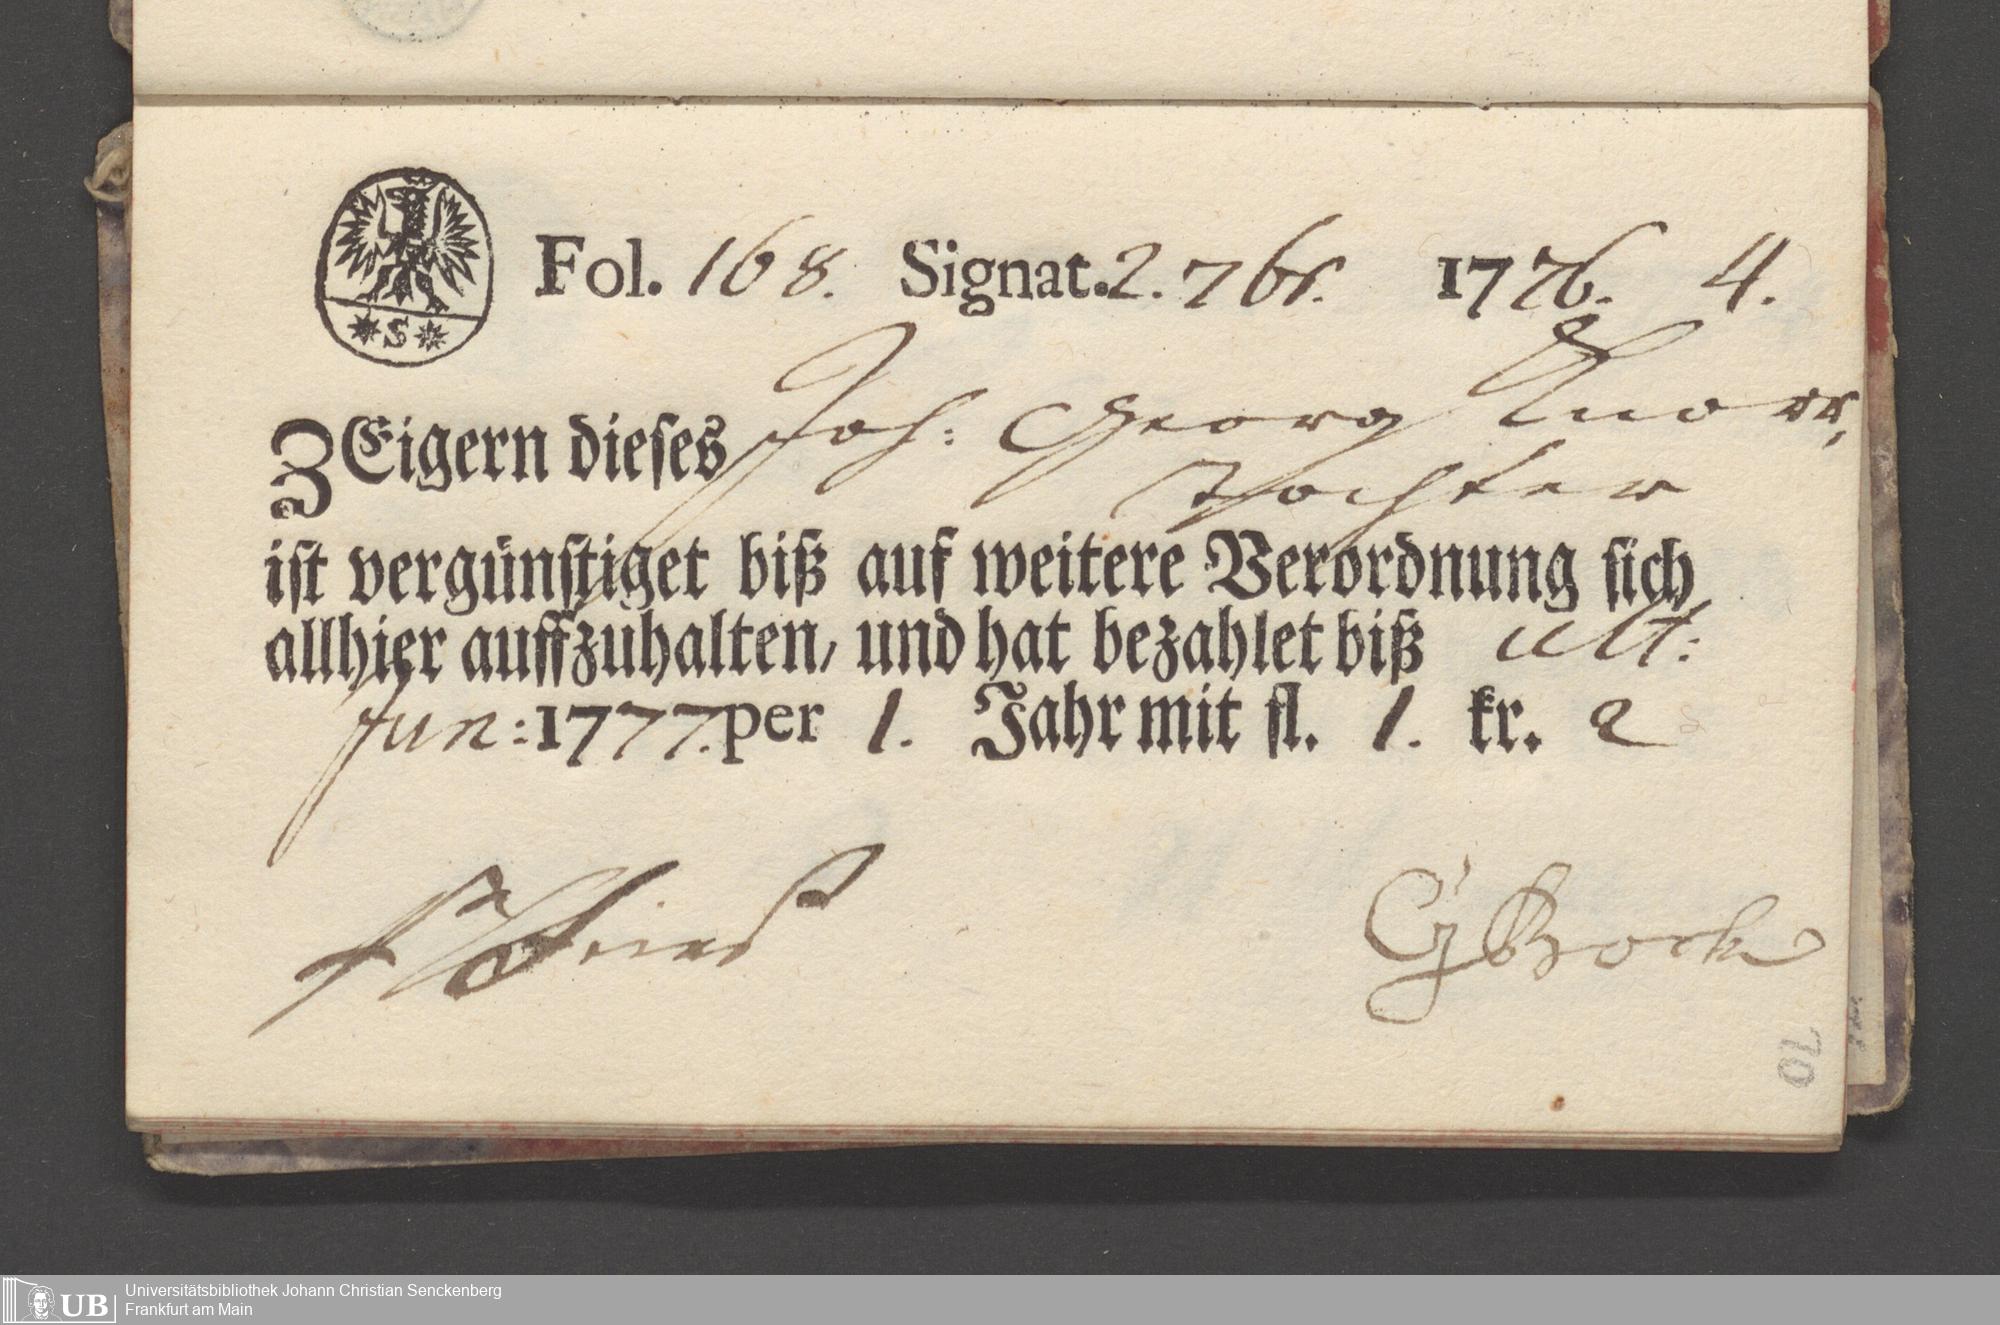 S
Fol. 168. Signat. 2. 7br. 1776. 4.
ZEigern dieses Joh: Georg Knorr,
Tochter
ist vergünstiget biß auf weitere Verordnung sich
allhier auffzuhalten, und hat bezahlet biß ult:
Jun: 1777. per 1. Jahr mit fl. 1. kr. 2
GBock
70
UB
Universitätsbibliothek Johann Christian Senckenberg
Frankfurt am Main